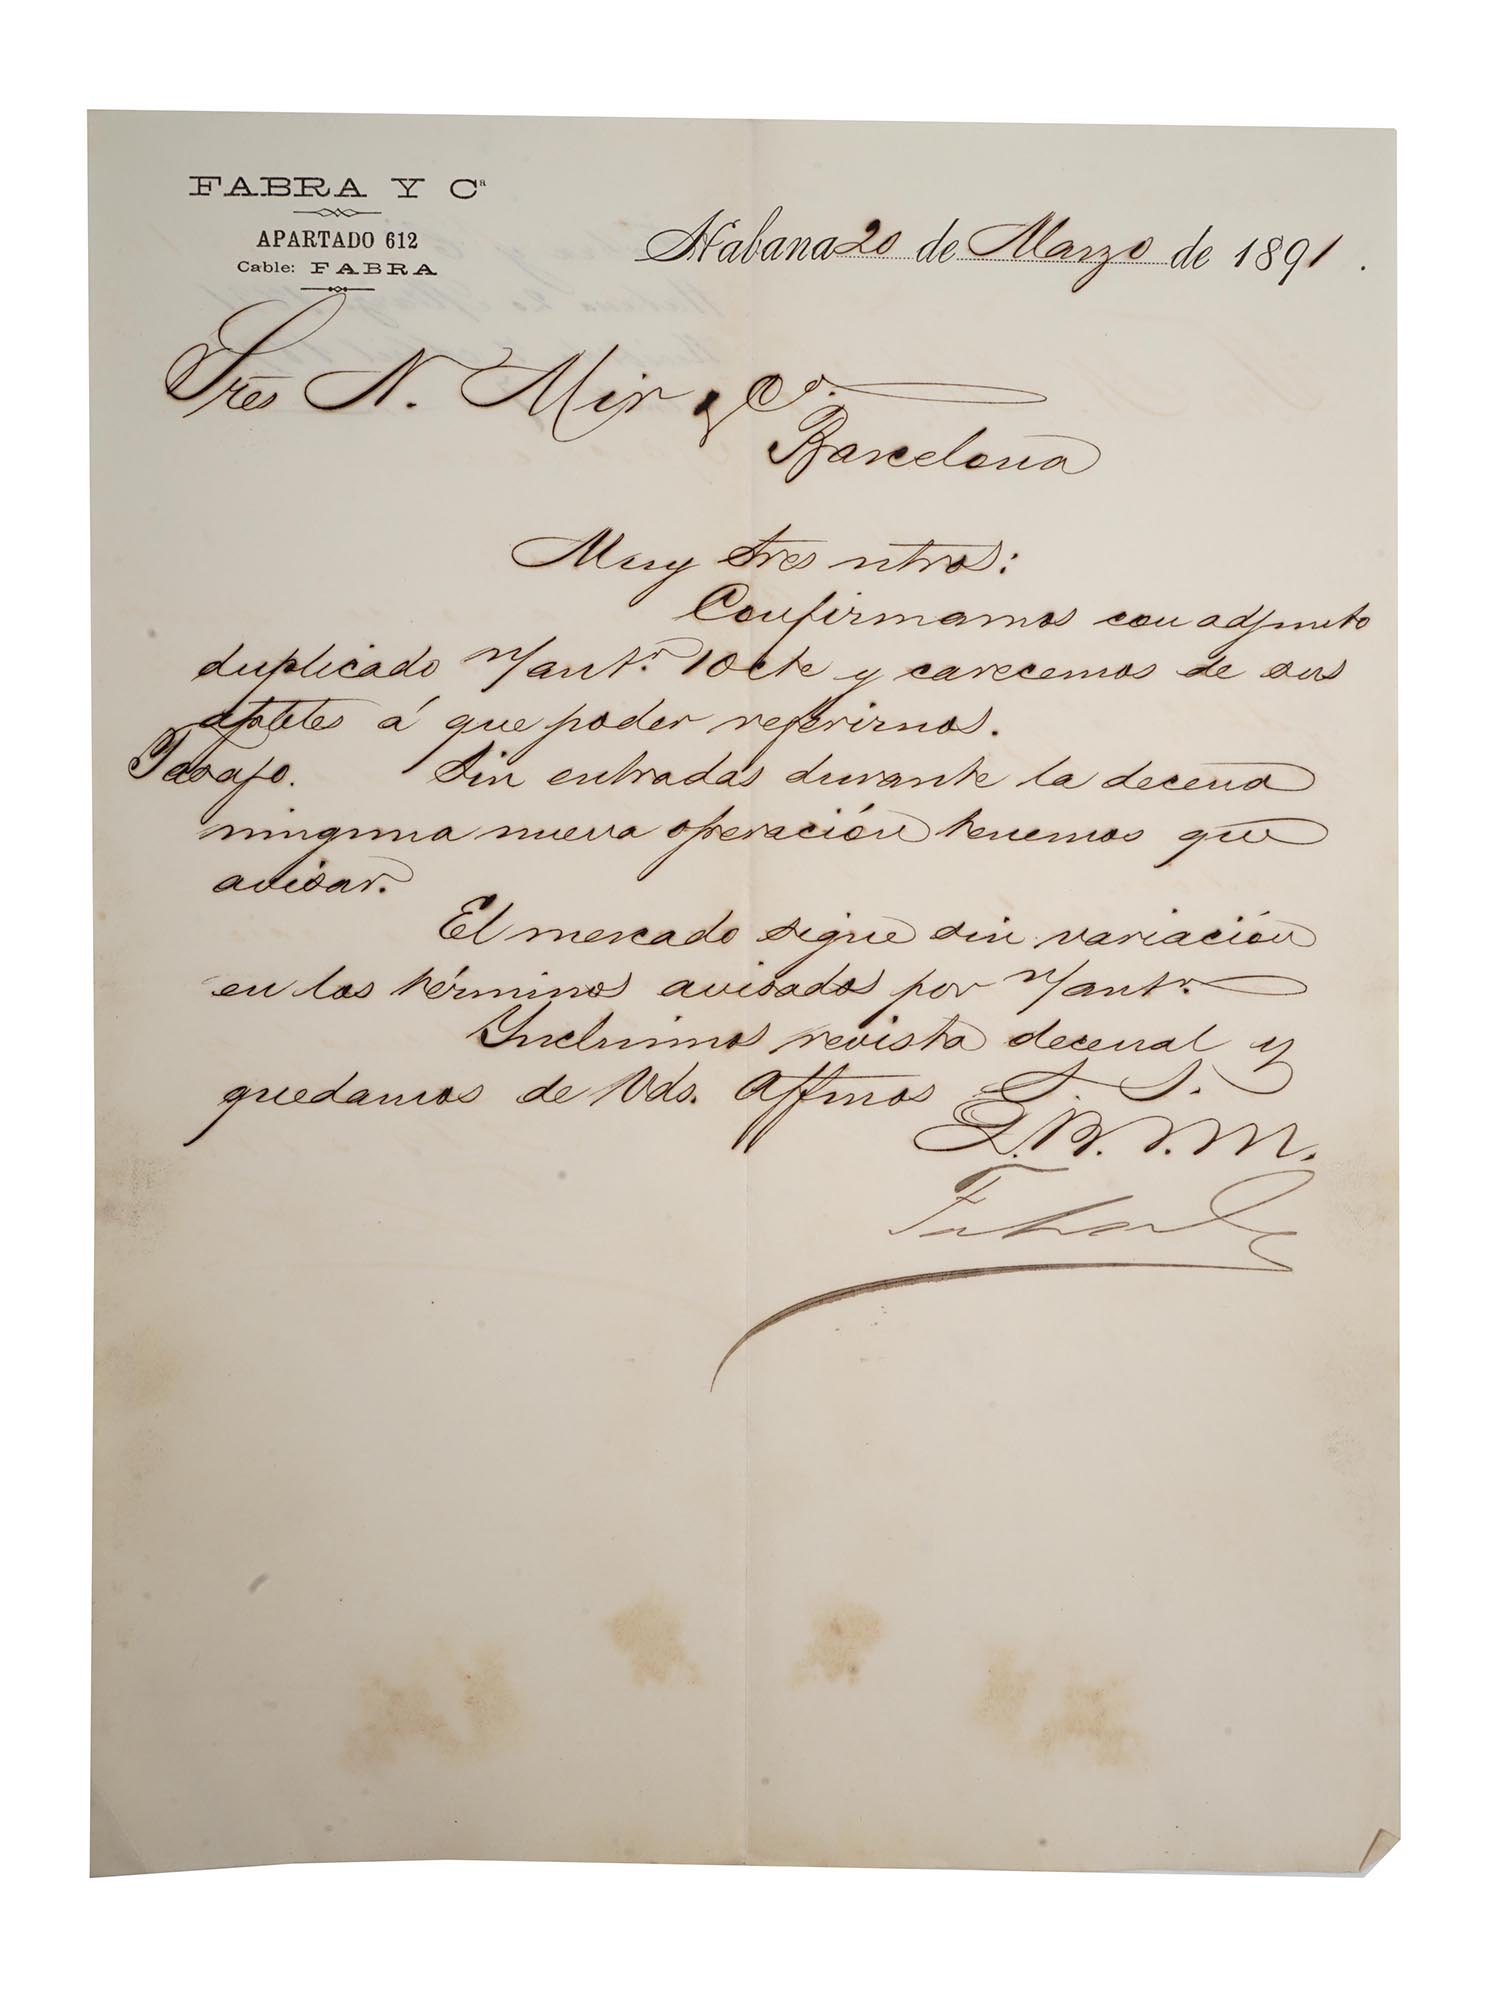 FABRA Y Cª
APARTADO 612
Cable: FABRA
Habana 20 de Marzo de 1891.
Sres N. Mir y Cª.
Barcelona
Muy Sres ntros:
Confirmamos con adjunto
duplicado n/antr. 10 cte y carecemos de sus
aptbles á que poder referirnos.
Tasajo. Sin entradas durante la decena
ninguna nueva operación tenemos que
avisar.
El mercado sigue sin variación
en los términos avisados por n/antr.
Incluimos revista decenal y
quedamos de Vds. Affmos S. S.
Q.B.S.M.
Fabra